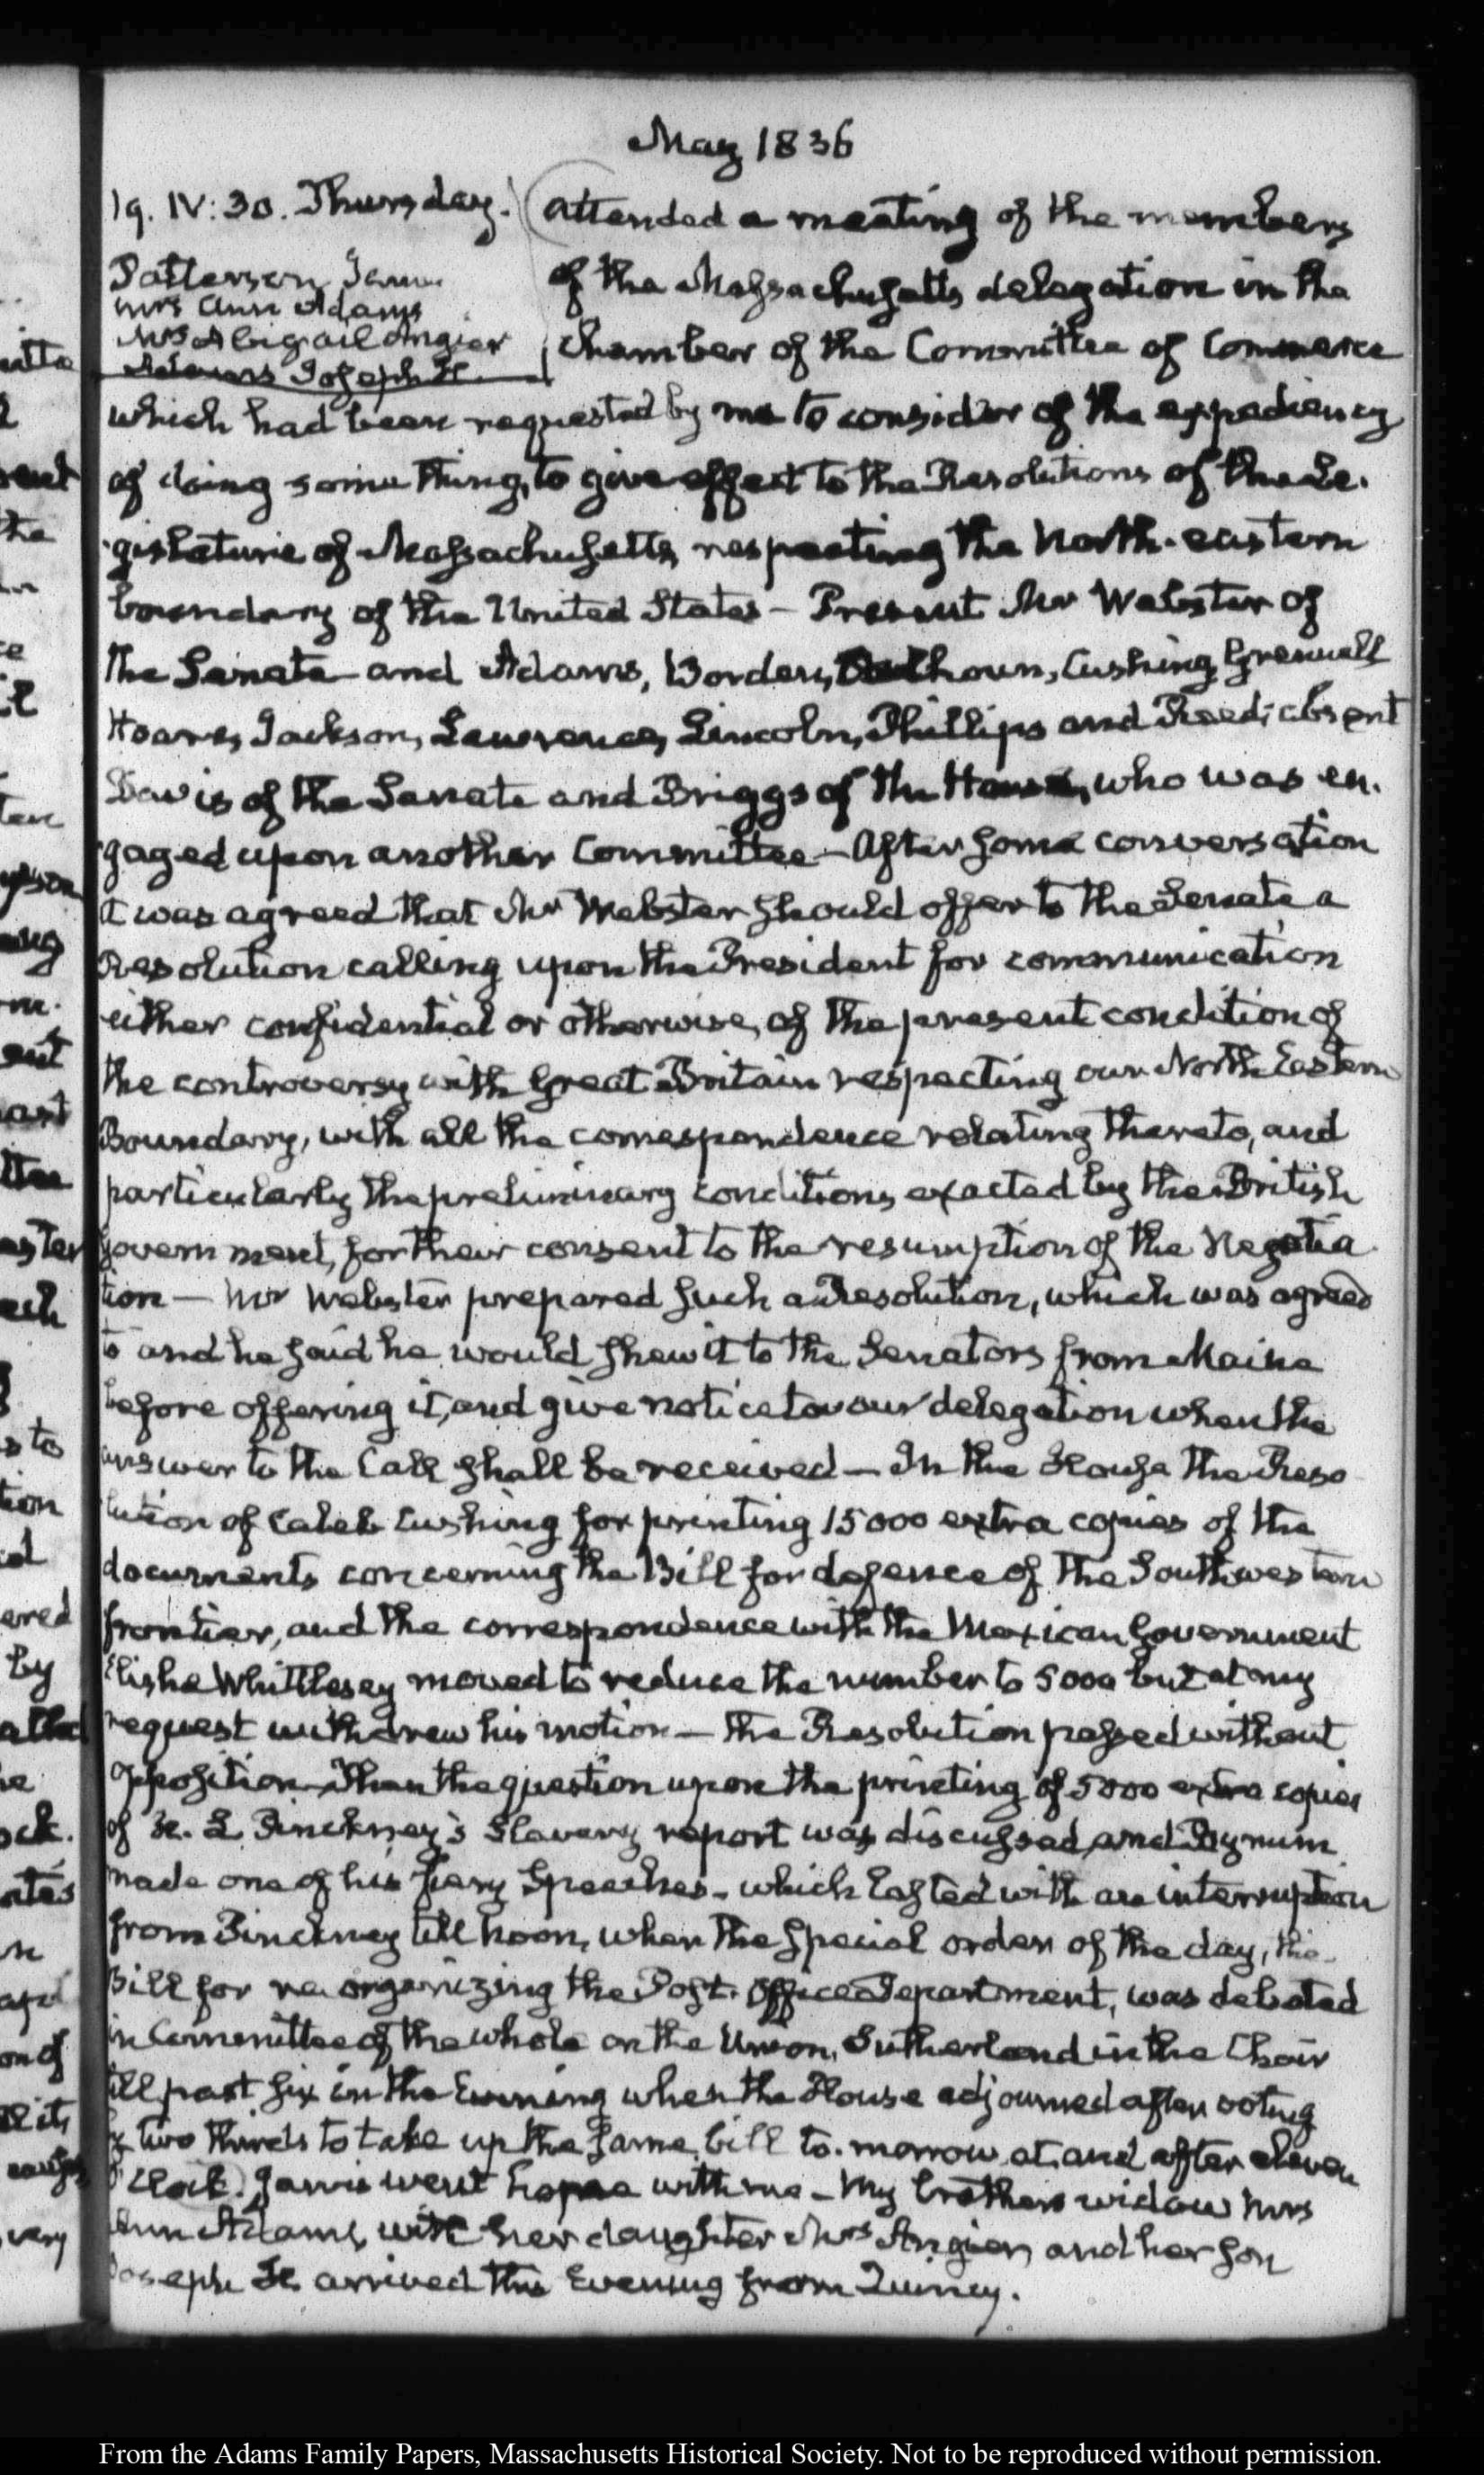 May 1836
19. IV: 30. Thursday.
Patterson
Mrs Ann Adams
Mrs Abigail Angier
Adams Joseph H.
attended a meeting of the members
of the Massachusetts delegation in the
chamber of the Committee of Commerce
which had been requested by me to consider of the expediency
of doing something, to give effect to the Resolutions of the Le-
gislature of Massachusetts respecting the North-eastern
boundary of the United States — Present Mr Webster of
the Senate and Adams, Borden, Calhoun, Cushing, Grennell
Hoare, Jackson, Lawrence, Lincoln, Phillips and Reed; absent
Davis of the Senate and Briggs of the House, who was en-
gaged upon another Committee — After some conversation
it was agreed that Mr Webster should offer to the Senate a
Resolution calling upon the President for communication
either confidential or otherwise, of the present condition of
the controversy with Great Britain respecting our North Eastern
Boundary, with all the correspondence relating thereto, and
particularly the preliminary conditions exacted by the British
Government, for their consent to the resumption of the Negotia
tion — Mr Webster prepared such a Resolution, which was agreed
to and he said he would shew it to the Senators from Maine
before offering it, and give notice to our delegation when the
answer to the Call shall be received — In the House the Reso
lution of Caleb Cushing for printing 15000 extra copies of the
documents concerning the Bill for defence of the Southwestern
frontier, and the correspondence with the Mexican Government
Elisha Whittlesey moved to reduce the number to 5000 but at my
request withdrew his motion — the Resolution passed without
opposition. Then the question upon the printing of 5000 extra copies
of H. L. Pinckney's Slavery report was discussed, and Bynum
made one of his fiery Speeches — which lasted with an interruption
from Pinckney till noon, when the special order of the day, the
Bill for re organizing the Post-Office Department, was debated
in Committee of the whole on the Union, Sutherland in the Chair
till past six in the Evening when the House adjourned after voting
by two thirds to take up the same bill to-morrow at and after eleven
O'Clock. Jarvis went home with me — My brothers widow Mrs
Ann Adams, with her daughter Mrs Angier, and her son
Joseph H. arrived this Evening from Quincy.
From the Adams Family Papers, Massachusetts Historical Society. Not to be reproduced without permission.